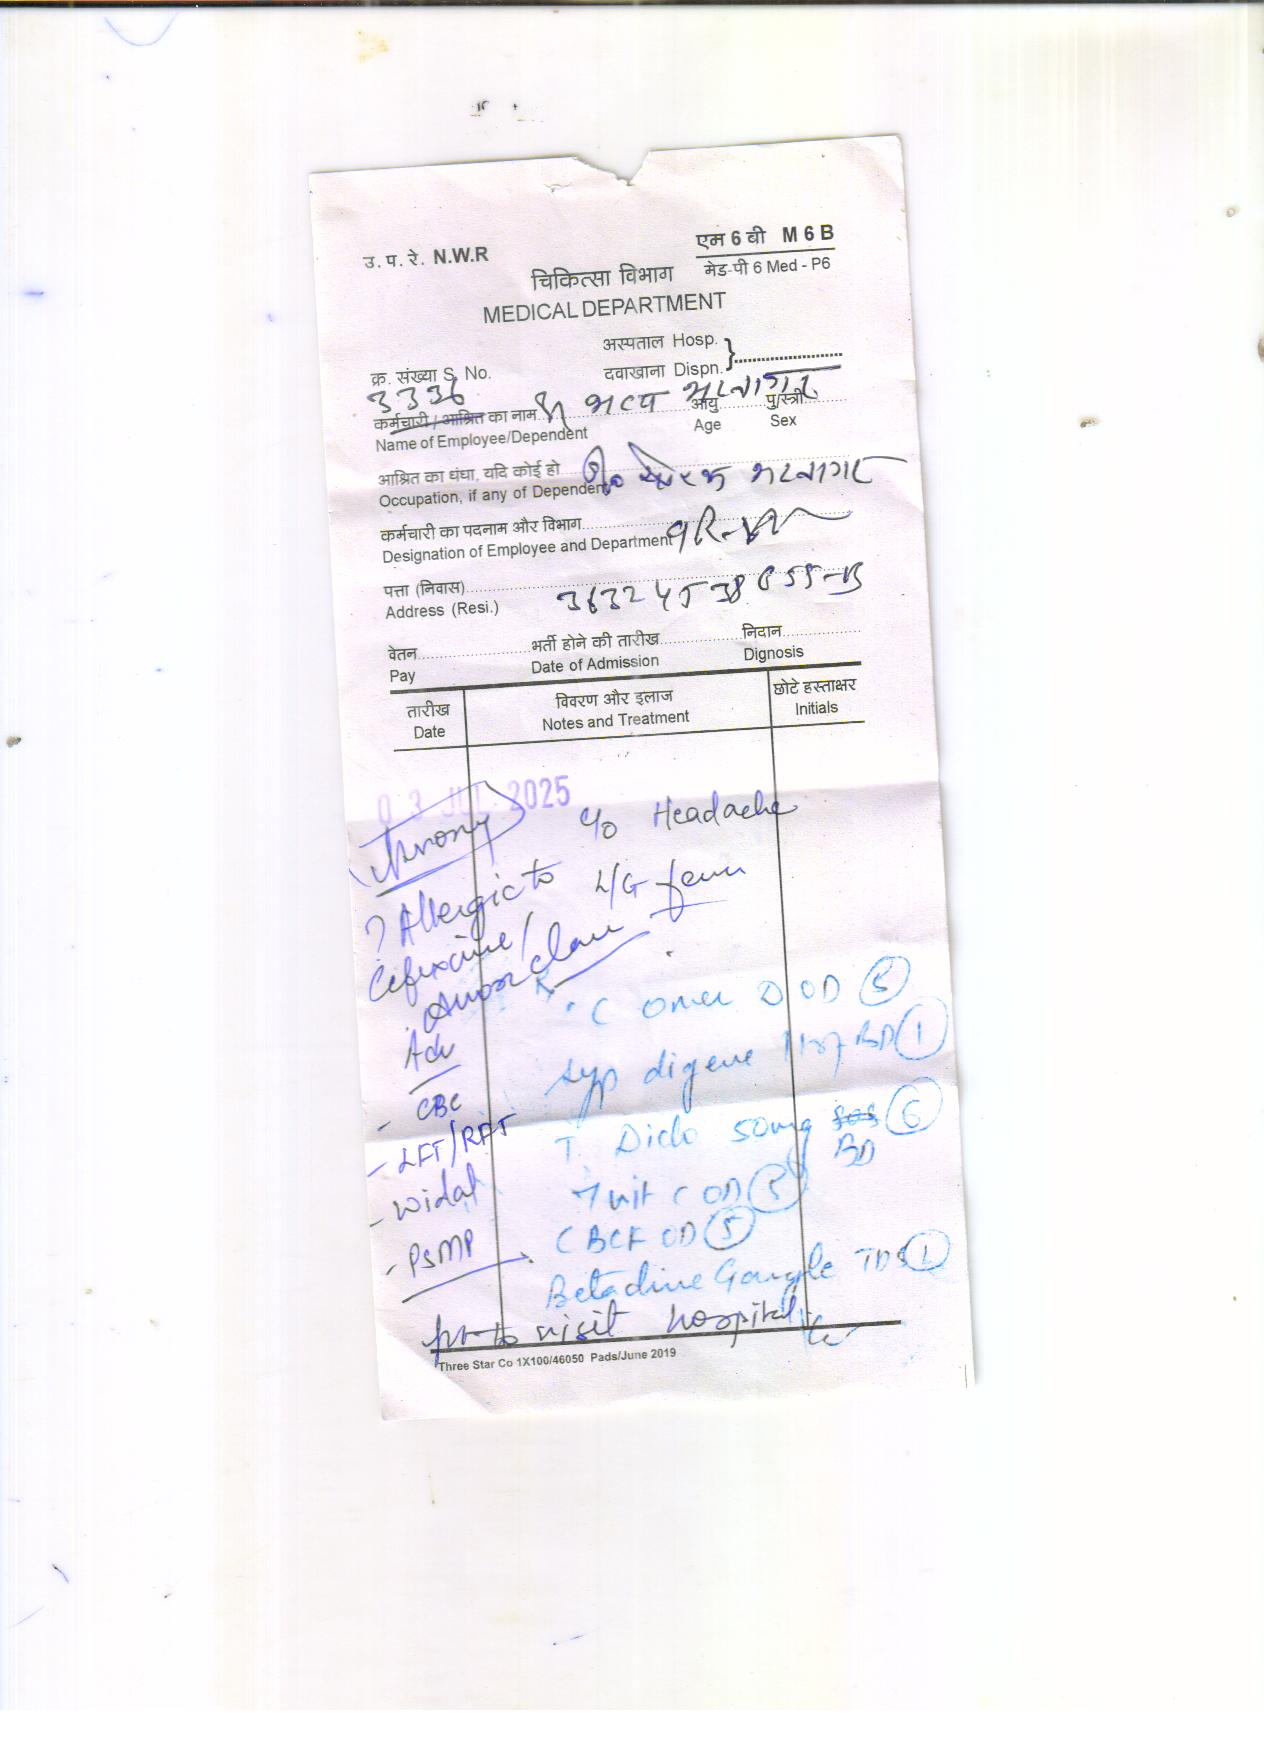 उ. प. रे. N.W.R
एम 6 बी M 6 B
मेड-पी 6 Med - P6
चिकित्सा विभाग
MEDICAL DEPARTMENT
अस्पताल Hosp.
दवाखाना Dispn.
क्र. संख्या S. No.
3336
कर्मचारी / आश्रित का नाम भव्य भटनागर आयु पु/स्त्री
Name of Employee/Dependent Age Sex
आश्रित का धंधा, यदि कोई हो भटनागर
Occupation, if any of Dependent
कर्मचारी का पदनाम और विभाग
Designation of Employee and Department
पत्ता (निवास)
Address (Resi.)
वेतन भर्ती होने की तारीख निदान
Pay Date of Admission Dignosis
तारीख विवरण और इलाज छोटे हस्ताक्षर
Date Notes and Treatment Initials
03 JUL 2025
c/o Headache
? Allergic to
Cefixime/
Amoxclav
L/G fever
Adv
- CBC
- LFT/RFT
- Widal
- PSMP
C Omee D OD (5)
Syp digene BD (1)
T. Diclo 50mg sos (6)
BD
C OD (5)
C BCF OD (5)
Betadine Gargle TDS (1)
to visit hospital
Three Star Co 1X100/46050 Pads/June 2019